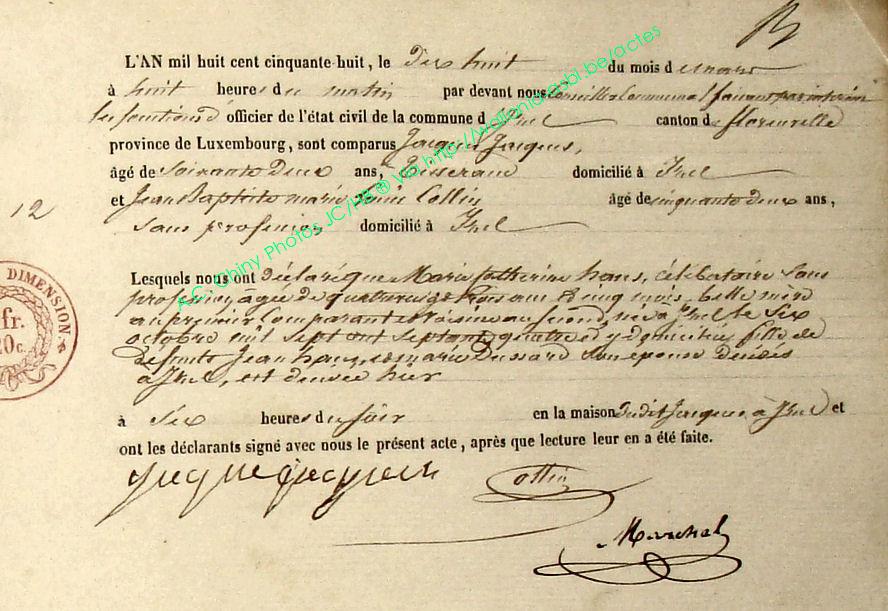 L'AN mil huit cent cinquante-huit, le dix huit du mois de mars
à huit heures du matin par devant nous Conseiller Communal faisant par intérim
les fonctions d' officier de l'état civil de la commune d' Izel canton de florenville
province de Luxembourg, sont comparus Jacques Jacques,
âgé de Soixante Deux ans, Tisserand domicilié à Izel
et Jean Baptiste marie Collin âgé de cinquante deux ans,
sans profession domicilié à Izel
12
DIMENSION
fr.
20c.
Lesquels nous ont Déclaré que Marie Catherine hans, célibataire sans
profession, agée de quatre vingt trois ans & cinq mois, belle mère
au premier Comparant et voisine au second, née à Izel le Six
octobre mil sept cent septante quatre et y domiciliée, fille de
Defunts Jean hans, et marie Dussard son épouse décédés
à Izel, est décédée hier
à Six heures du soir en la maison dudit Jacques, à Izel et
ont les déclarants signé avec nous le présent acte, après que lecture leur en a été faite.
Jacque Jacques
Collin
Marechal
A.C. Chiny Photos JC/HB ® via http://wallonia-asbl.be/actes